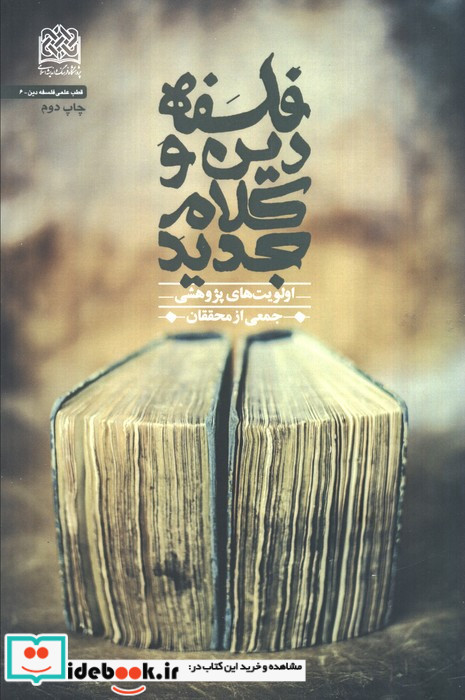 پژوهشگاه فرهنگ و اندیشه اسلامی
قطب علمی فلسفه دین-۶
چاپ دوم
فلسفه
دین و
کلام
جدید
اولویت‌های پژوهشی
جمعی از محققان
مشاهده و خرید این کتاب در:
idebook.ir